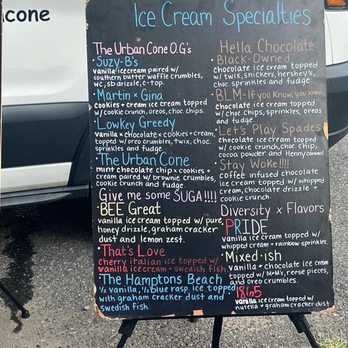 cone
Ice Cream Specialties
The Urban Cone O.G's
• Suzy-B's
vanilla icecream paired w/
southern butter waffle crumbles,
wc, sb drizzle, c-top.
• Martin x Gina
cookies + cream ice cream topped
w/ cookie crunch, oreos, choc chips.
• Lowkey Greedy
vanilla x chocolate x cookies + cream,
topped w/ oreo crumbles, twix, choc
sprinkles and fudge.
• The Urban Cone
mint chocolate chip x cookies +
cream paired w/ brownie crumbles,
cookie crunch and fudge.
Give me some SUGA!!!!
• BEE Great
vanilla ice cream topped w/ pure
honey drizzle, graham cracker
dust and lemon zest.
• That's Love
cherry italian ice topped w/
vanilla icecream + swedish fish.
• The Hamptons Beach
½ vanilla, ½ blue rasp. ice topped
with graham cracker dust and
swedish fish.
Hella Chocolate
• Black-Owned
chocolate ice cream topped
w/ twix, snickers, hershey's,
choc sprinkles and fudge.
• BLM-If you Know, you know
chocolate ice cream topped
w/ choc chips, sprinkles, oreos
and fudge.
• Let's Play Spades
chocolate icecream topped
w/ cookie crunch, choc chip,
cocoa powder and henny caramel
• Stay Woke!!!!
Coffee infused chocolate
ice cream topped w/ whipped
cream, chocolate drizzle +
cookie crunch
Diversity x Flavors
PRIDE
vanilla ice cream topped w/
whipped cream + rainbow sprinkles.
• Mixed·ish
vanilla + chocolate ice cream
topped w/ M+M's, reese pieces,
and oreo crumbles.
1865
vanilla ice cream topped w/
nutella + graham cracker dust